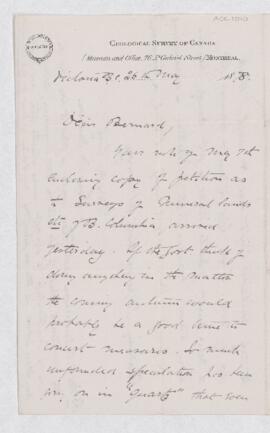 GEOLOGICAL SURVEY OF CANADA
(Museum and Office, 76 St Gabriel Street) MONTREAL.
Victoria B.C. 26th May 1878.
Dear Bernard,
Your note of May 7th
enclosing copy of petition as
to Surveys of mineral lands
of B. Columbia, arrived
yesterday. If the Govt think of
doing anything in the matter
the coming autumn would
probably be a good time to
concert measures. So much
unfounded speculation has been
on in "Quartz" that even